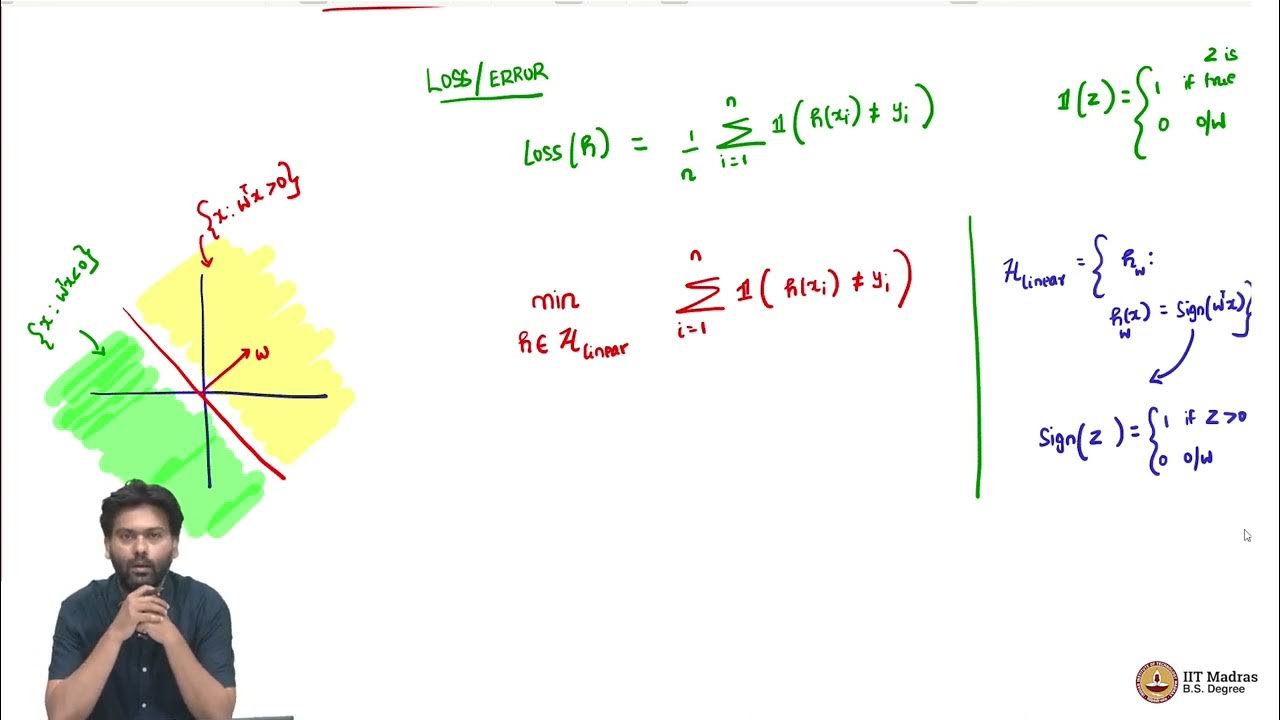 LOSS/ERROR
Loss(h) = 1/n Σ_{i=1}^{n} 𝟙(h(x_i) ≠ y_i)
𝟙(z) = { 1 z is if true
0 o/w
{x: wᵀx>0}
{x: wᵀx<0}
w
min Σ_{i=1}^{n} 𝟙(h(x_i) ≠ y_i)
h ∈ ℋ_linear
ℋ_linear = { h_w:
h_w(x) = Sign(wᵀx)}
Sign(z) = { 1 if z>0
0 o/w
IIT Madras
B.S. Degree